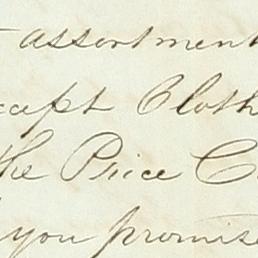 assortment
Cloth
the Price C
you promise